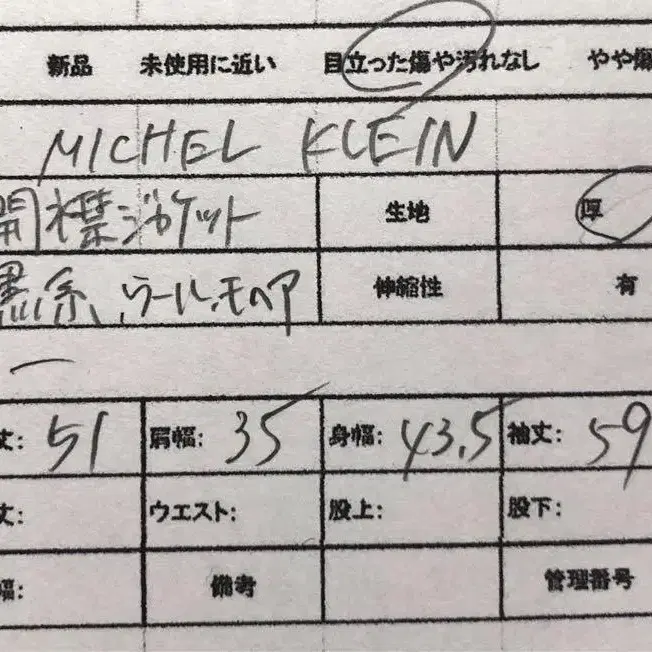 新品 未使用に近い 目立った傷や汚れなし やや傷
MICHEL KLEIN
開襟ジャケット 生地 厚
黒系、ウール、モヘア 伸縮性 有
丈: 51 肩幅: 35 身幅: 43.5 袖丈: 59
丈: ウエスト: 股上: 股下:
幅: 備考 管理番号